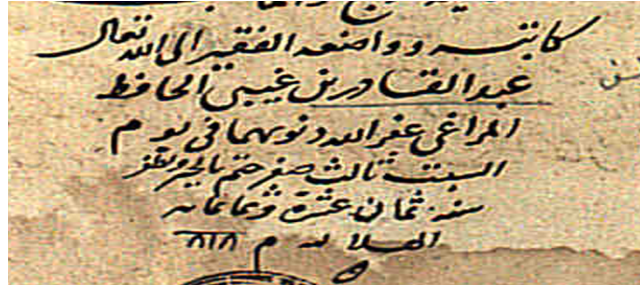 كاتبه وواضعه الفقير الى الله تعالى
عبد القادر بن غيبي الحافظ
المراغي عفر الله ذنوبهما في يوم
السبت ثالث صفر ختم بالخير والظفر
سنة ثمان عشرة وثمانمائة
الهلالية م ٨١٨